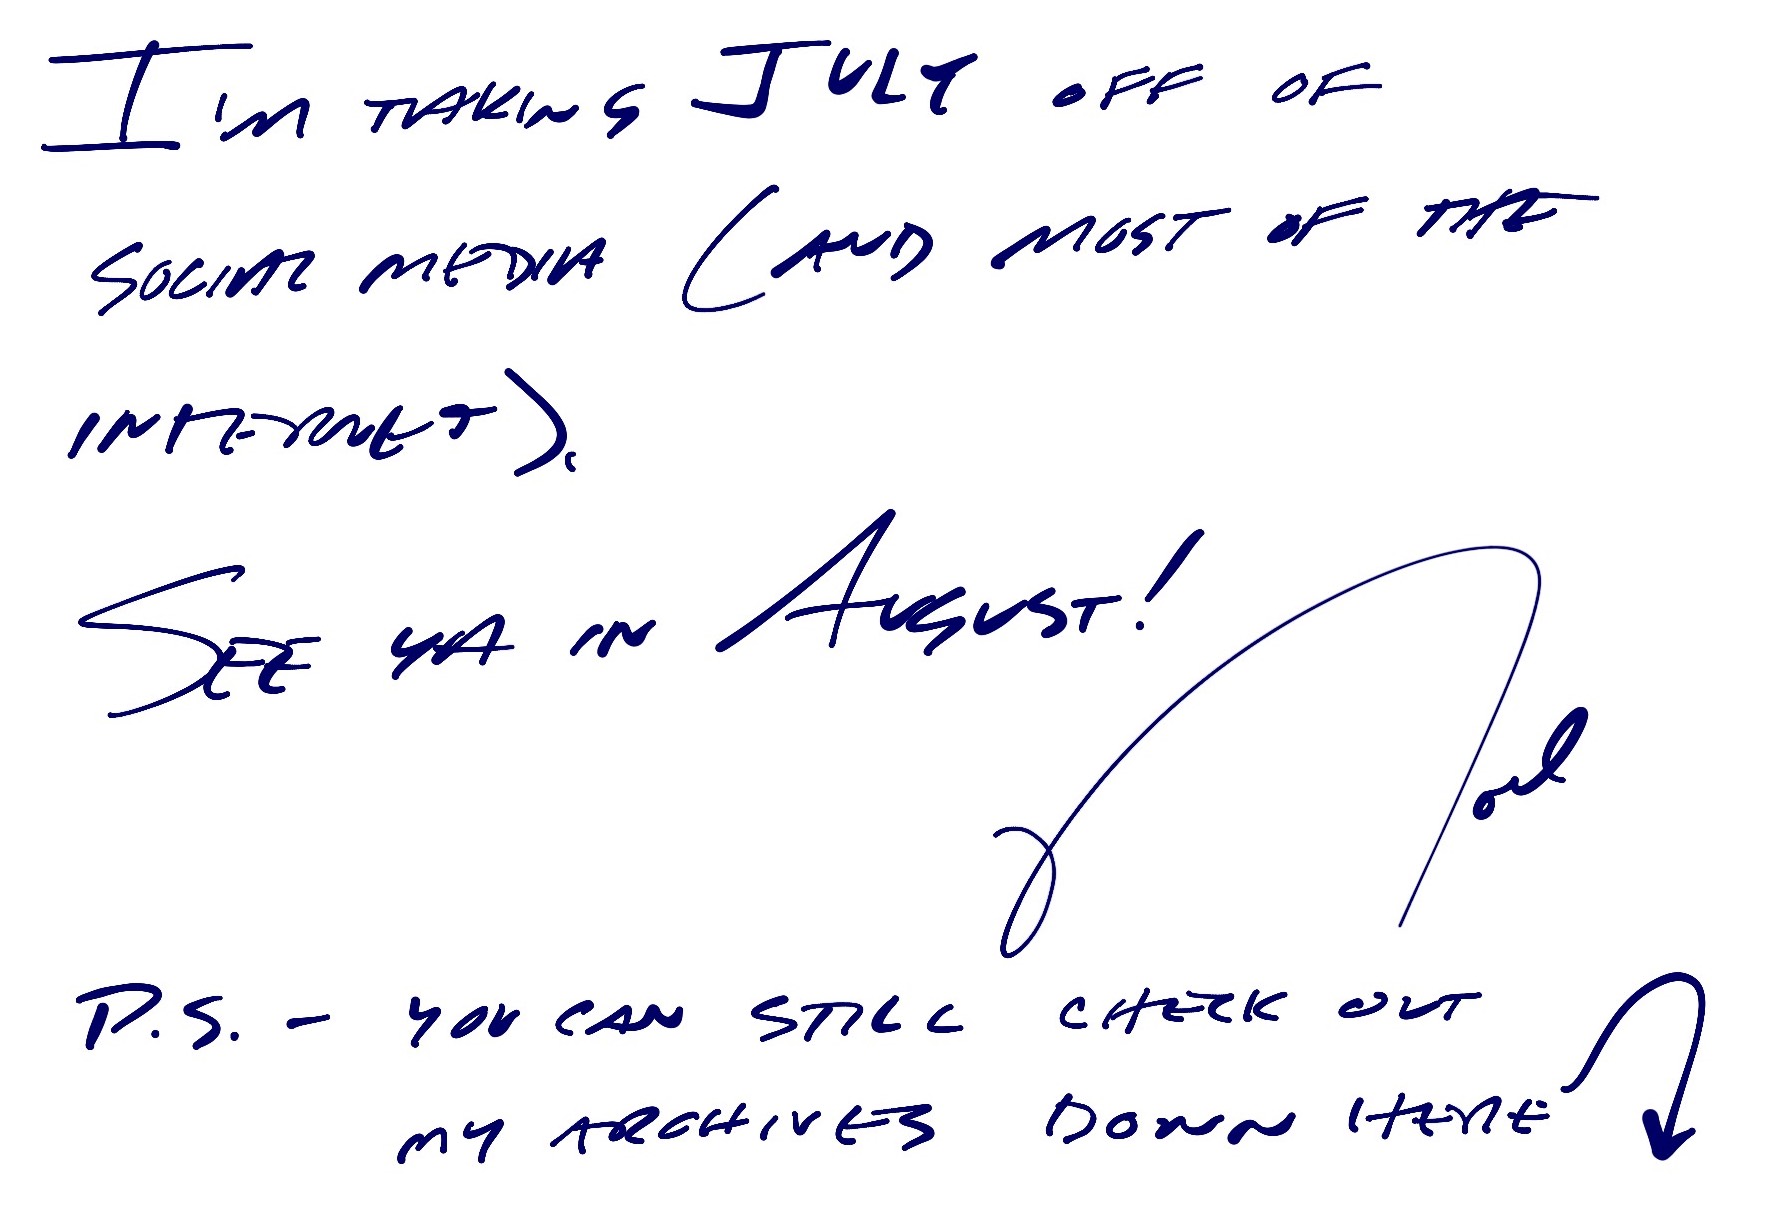 I'm TAKING JULY OFF OF
SOCIAL MEDIA (AND MOST OF THE
INTERNET).
SEE YA IN AUGUST!
P.S. - YOU CAN STILL CHECK OUT
MY ARCHIVES DOWN HERE